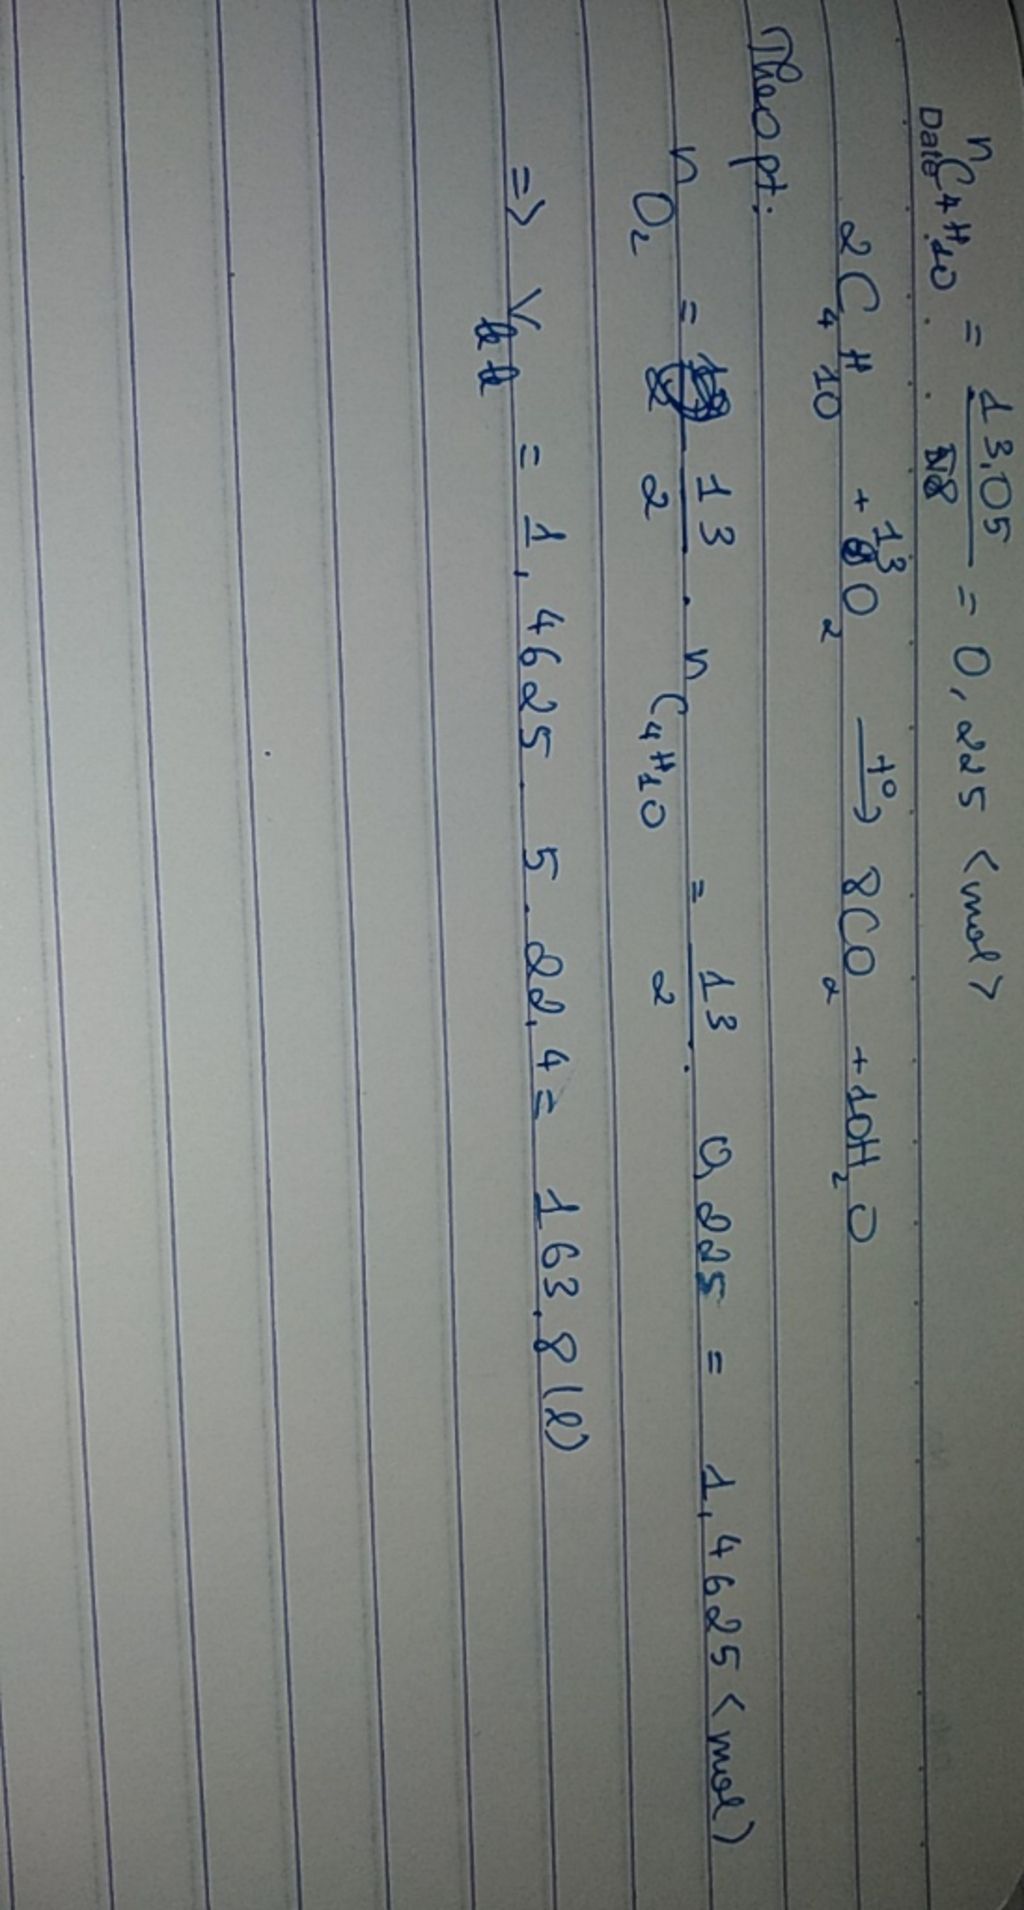 n C4H10 = 13,05 / 58 = 0,225 <mol>
Date
2C4H10 + 13O2 t° → 8CO2 + 10H2O
Theo pt:
n O2 = 13/2 . n C4H10 = 13/2 . 0,225 = 1,4625 <mol>
=> V kk = 1,4625 . 5 . 22,4 = 163,8 (l)